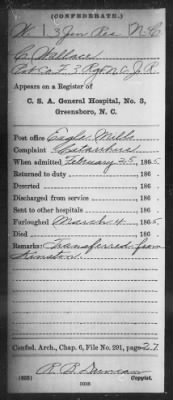 (CONFEDERATE.)
W. 3 Jun Res N.C.
C. Wallace
Co. F. 3 Rgt N.C. J.R.
Appears on a Register of
C. S. A. General Hospital, No. 3,
Greensboro, N. C.
Post office Eagle Mills
Complaint Catarrhus
When admitted February 25, 1865.
Returned to duty , 186 .
Deserted , 186 .
Discharged from service , 186 .
Sent to other hospitals , 186 .
Furloughed March 4, 1865.
Died , 186 .
Remarks: Transferred from
Kinston.
Confed. Arch., Chap. 6, File No. 291, page 27
R. B. Duncan
Copyist.